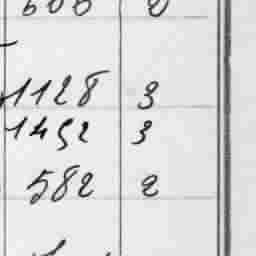 1128 3
1452 3
582 2